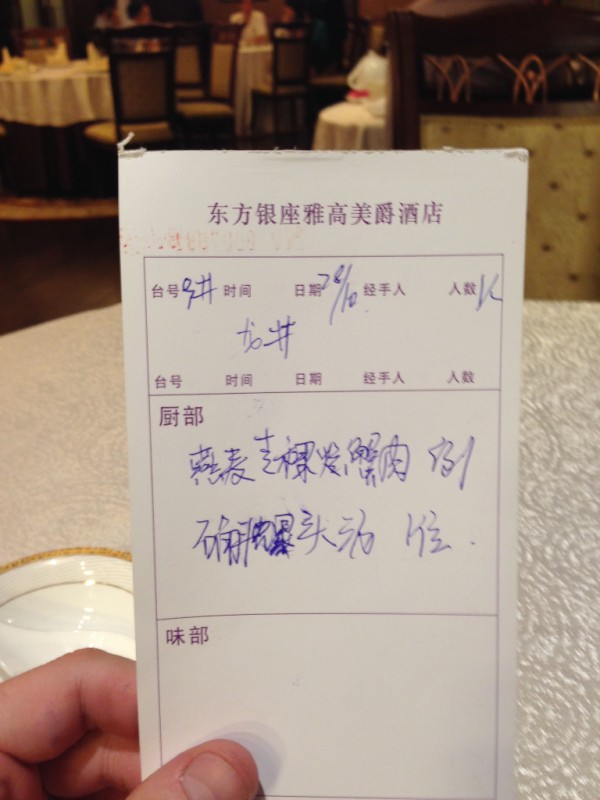 东方银座雅高美爵酒店
台号 9井 时间 日期 28/10 经手人 人数
龙井
台号 时间 日期 经手人 人数
厨部
燕麦 蟹肉 例
头汤 1位
味部